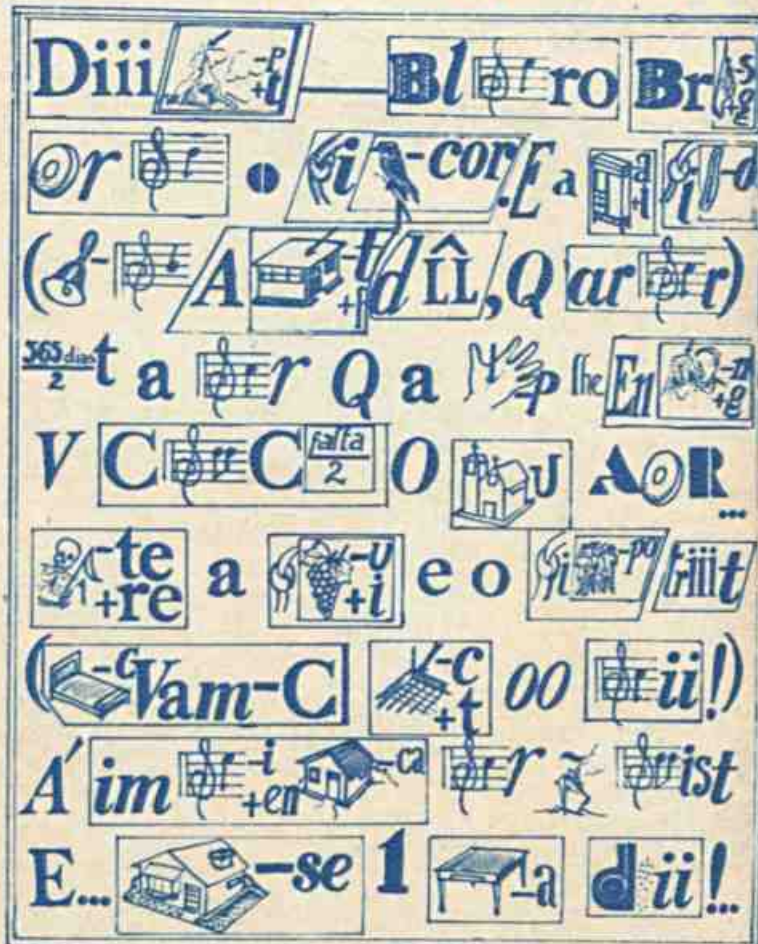 Diii -p +t Bl ro Br -s +g
Or o i -cor. E a a +i i -o
( - A -t +p d ÎL, Q ar r)
365 dias 2 t a r Q a -p lhe En -n +g
V C C falta 2 O U AOR...
-te +re a -u +i e o i -po triiit
( -c Vam-C -c +t oo ii!)
Á im -i +en -ca r ~ ist
E... -se 1 -a d ii!..